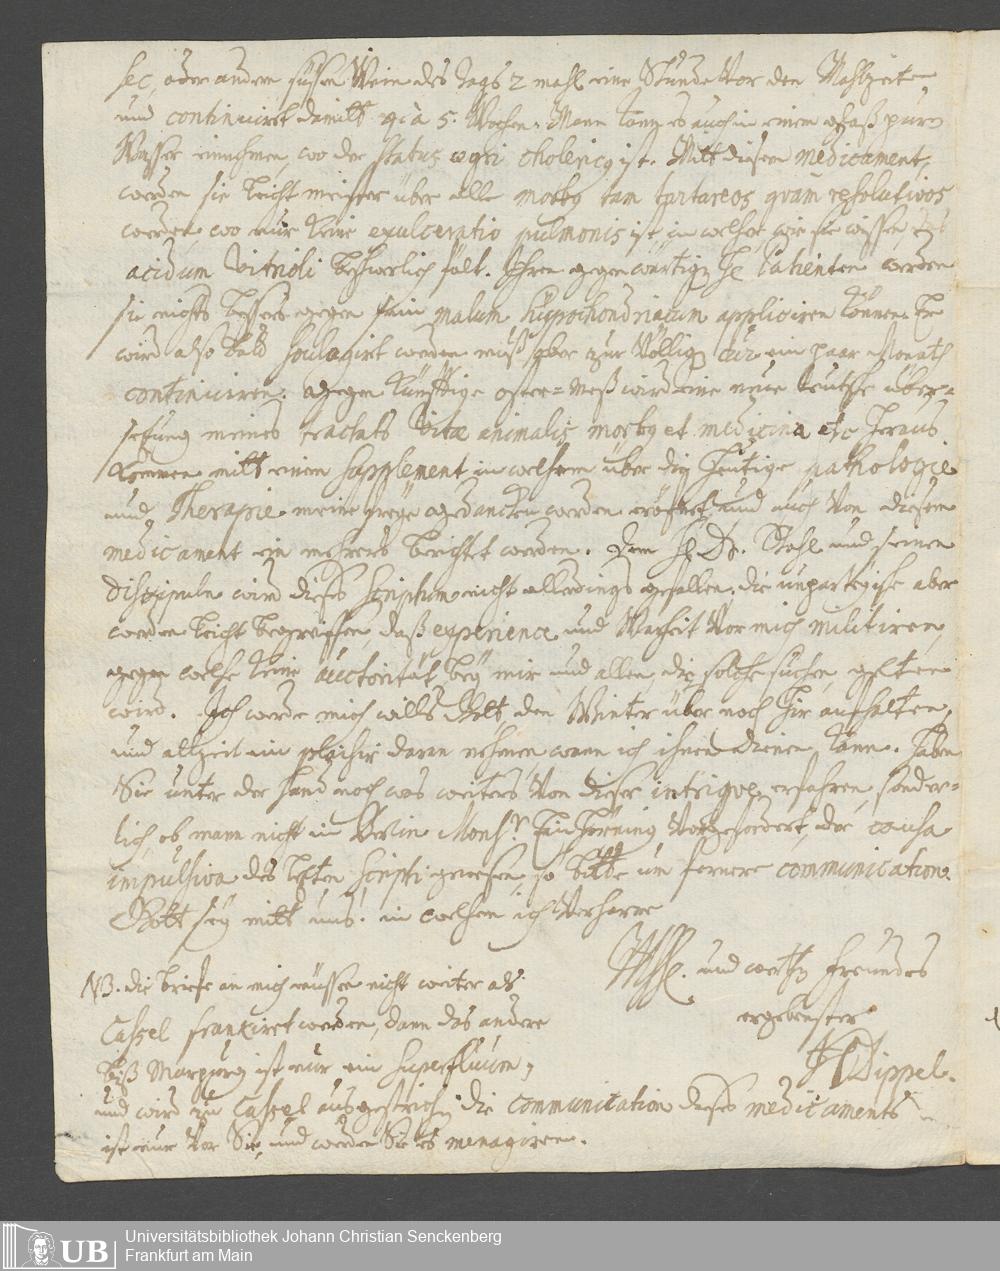 sec, oder andern süsen Wein des tags 2 mahl eine Stunde vor der Mahlzeit,
und continuiret damitt 4 à 5. Wochen. Mann kan es auch in einem glaß pure
Wasser einnehmen, wo der status aegri cholericg ist. Mitt diesem medicament,
werden sie leicht meister über alle morbg tam tartareos qvam resolutivos
werden, wo nur keine exulceratio pulmonis ist, in welcher wie sie wissen, das
acidum Vitrioli beschwerlich fält. Ihren gegenwärtigen H. Patienten werden
sie nichts bessers gegen sein malum hypochondriacum appliciren können. Er
wird also bald soulagirt werden, muß aber zur völligen cur ein paar Monath
continuiren. Gegen künfftige oster=meß wird eine neue teutsche über=
setzung meines tractats Vitae animalis morbg et medicina etc heraus
kommen mitt einem supplement in welchem über die heutige pathologie
und Therapie meine gedancken werden eröfnet, und auch von diesem
medicament ein mehrers berichtet werden. Dem H. Dr. Stahl und seinen
discipuln wird dieses scriptum nicht allerdings gefallen. die unpartheyische aber
werden leicht begreiffen, daß experience und Warheit vor mich militiren,
gegen welche keine auctorität bey mir und allen, die solche suchen, gelten
wird. Ich werde mich wills Gott den Winter über noch hir aufhalten,
und allzeit ein plaisir daran nehmen, wann ich ihnen dienen kann. Haben
Sie unter der hand noch was weiters von dieser intrigve erfahren, sonder=
lich ob mann nicht in Berlin Monsr. vorgefordert, der causa
impulsiva des letzten scripti gewesen, so bitte um fernere communication.
Gott sey mitt uns! in welchem ich verharre
und werthen freundes
ergebenster
Dippel.
NB. die briefe an mich müssen nicht weiter als
Cassel franciret werden, dann das andere
biß Marpurg ist nur ein superfluum,
und wird zu Cassel ausgestrichen. die communication dieses medicaments
ist nur vor Sie, und werden Sie es menagiren.
UB
Universitätsbibliothek Johann Christian Senckenberg
Frankfurt am Main